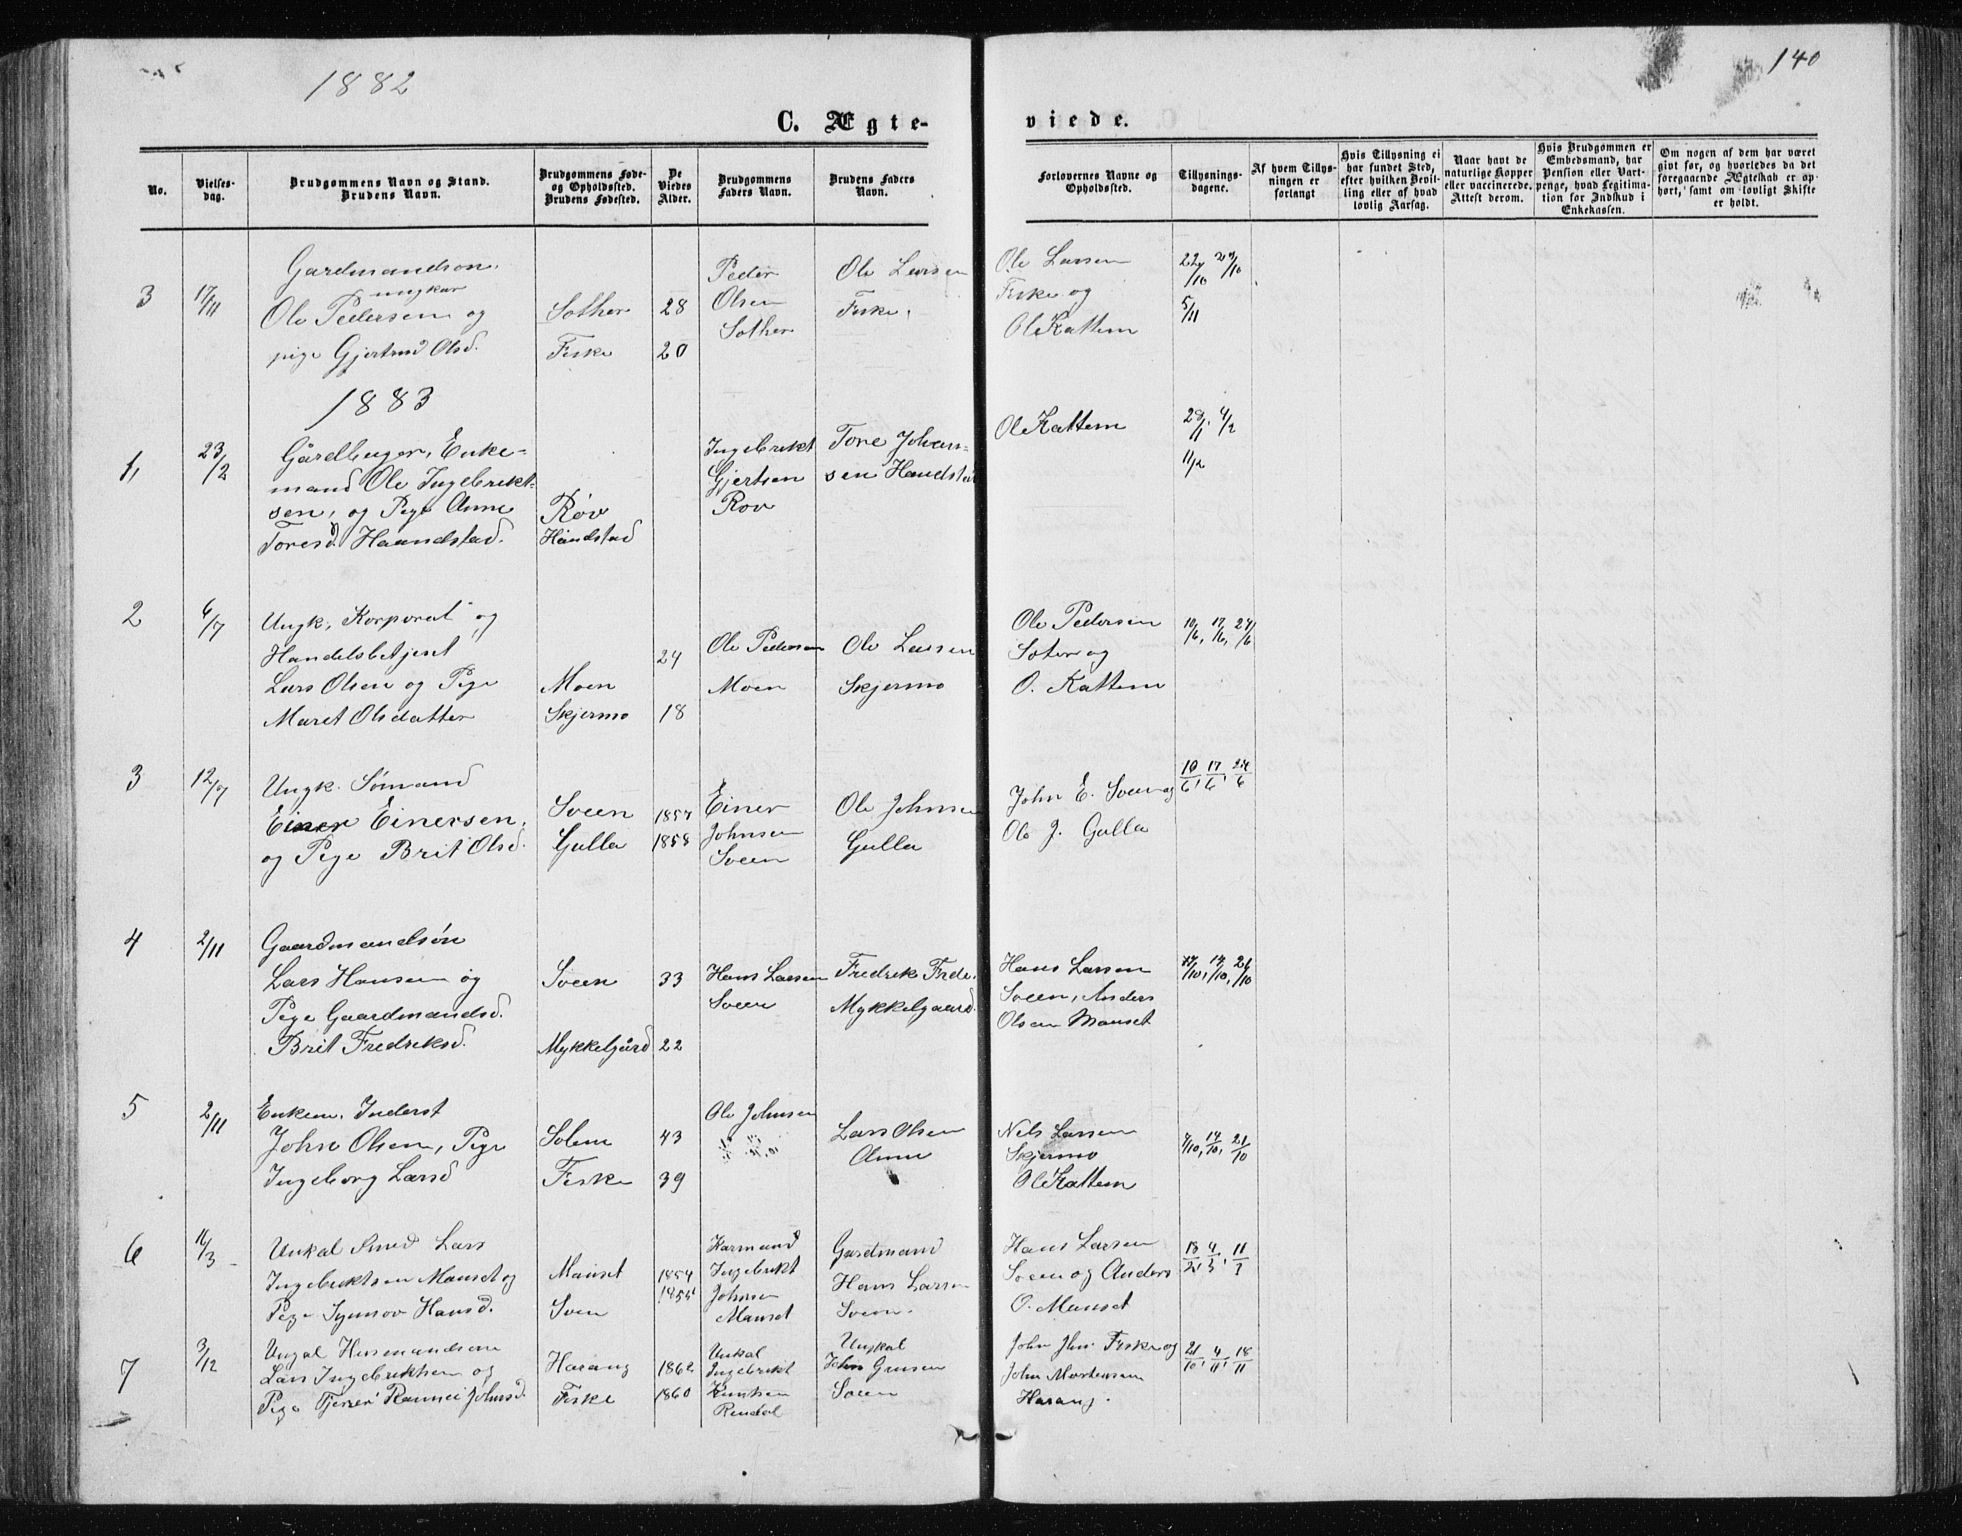 1882
140
C. Ægte-
viede.
No.
Vielses-
dag.
Brudgommens Navn og Stand.
Brudens Navn.
Brudgommens Føde-
og Opholdssted.
Brudens Fødested.
De
Viedes
Alder.
Brudgommens
Faders Navn.
Brudens Faders
Navn.
Forlovernes Navne og
Opholdssted.
Tillysnings-
dagene.
Af hvem Tillys-
ningen er
forlangt
Hvis Tillysning ei
har fundet Sted,
efter hvilken Bevil-
ling eller af hvad
lovlig Aarsag.
Naar havt de
naturlige Kopper
eller vaccinerede.
Attest derom.
Hvis Brudgommen er
Embedsmand, har
Pension eller Vart-
penge, hvad Legitima-
tion for Indskud i
Enkekassen.
Om nogen af dem har været
givt før, og hvorledes da det
foregaaende Ægteskab er op-
hørt, samt om lovligt Skifte
er holdt.
3
17/11
Gardmandsøn.
ungkar
Ole Pedersen og
pige Gjertrud Olsd.
Sother
Fiske
28
20
Peder
Olsen
Sother
Ole Larsen
Fiske.
Ole Larsen
Fiske og
Ole Kattem
22/10 29/10
5/11
1883
1,
23/2
Gårdbruger, Enke-
mand Ole Ingebrikt-
sen, og Pige Anne
Toresd. Haandstad.
Røv
Håndstad
Ingebrikt
Gjertsen
Rov
Tore Johan-
sen Handstad
Ole Kattem
4/2
11/2
2
6/7
Ungk, Korporal og
Handelsbetjent
Lars Olsen og Pige
Maret Olsdatter
Moen
Skjermo
24
18
Ole Pedersen
Moen
Ole Larsen
Skjermo
Ole Pedersen
Soter og
O. Kattem
10/6, 17/6, 24/6
3
12/7
Ungk. Sømand
Einer Einersen,
og Pige Brit Olsd.
Sveen
Gulla
1857
1858
Einer
Johnsen
Sveen
Ole Johnsen
Gulla
John E. Sveen og
Ole J. Gulla
10/6, 17/6, 24/6
4
2/11
Gaardmandsøn
Lars Hansen og
Pige Gaardmandsd.
Brit Fredriksd.
Sveen
Mykkelgård
33
22
Hans Larsen
Sveen
Fredrik Frede.
Mykkelgaard.
Hans Larsen
Sveen, Anders
Olsen Manset
14/10, 21/10
5
2/11
Enkem. Inderst
John Olsen, Pige
Ingeborg Larsd
Solem
Fiske
43
39
Ole Johnsen
Lars Olsen
Nels Larsen
Skjermo
Ole Kattem
7/10, 14/10, 21/10
6
16/3
Unkal Smed Lars
Ingebriktsen Manset og
Pige Synnøv Hansd.
Manset
Sven
1854
Karmand
Ingebrikt
Johnsen
Manset
Gardmand
Hans Larsen
Sveen.
Hans Larsen
Sveen og Anders
O. Manset
18/2, 4/3, 11/3
7
3/12
Ungal Husmandsøn
Lars Ingebriktsen og
Harang
Fiske
1862
1860
Unkal
Ingebrikt
Knutsen
Rendal
Ungkal
Sveen
Fiske og
John Mortensen
Harang.
21/10, 4/11, 18/11